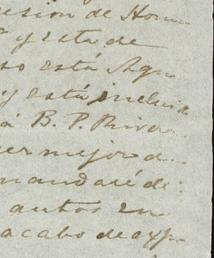 esion de Horm
a y esta de
so está Agu
y está inclui
á B. P. Riva
er mejor d
mandaré de
autos en
acabo de exp